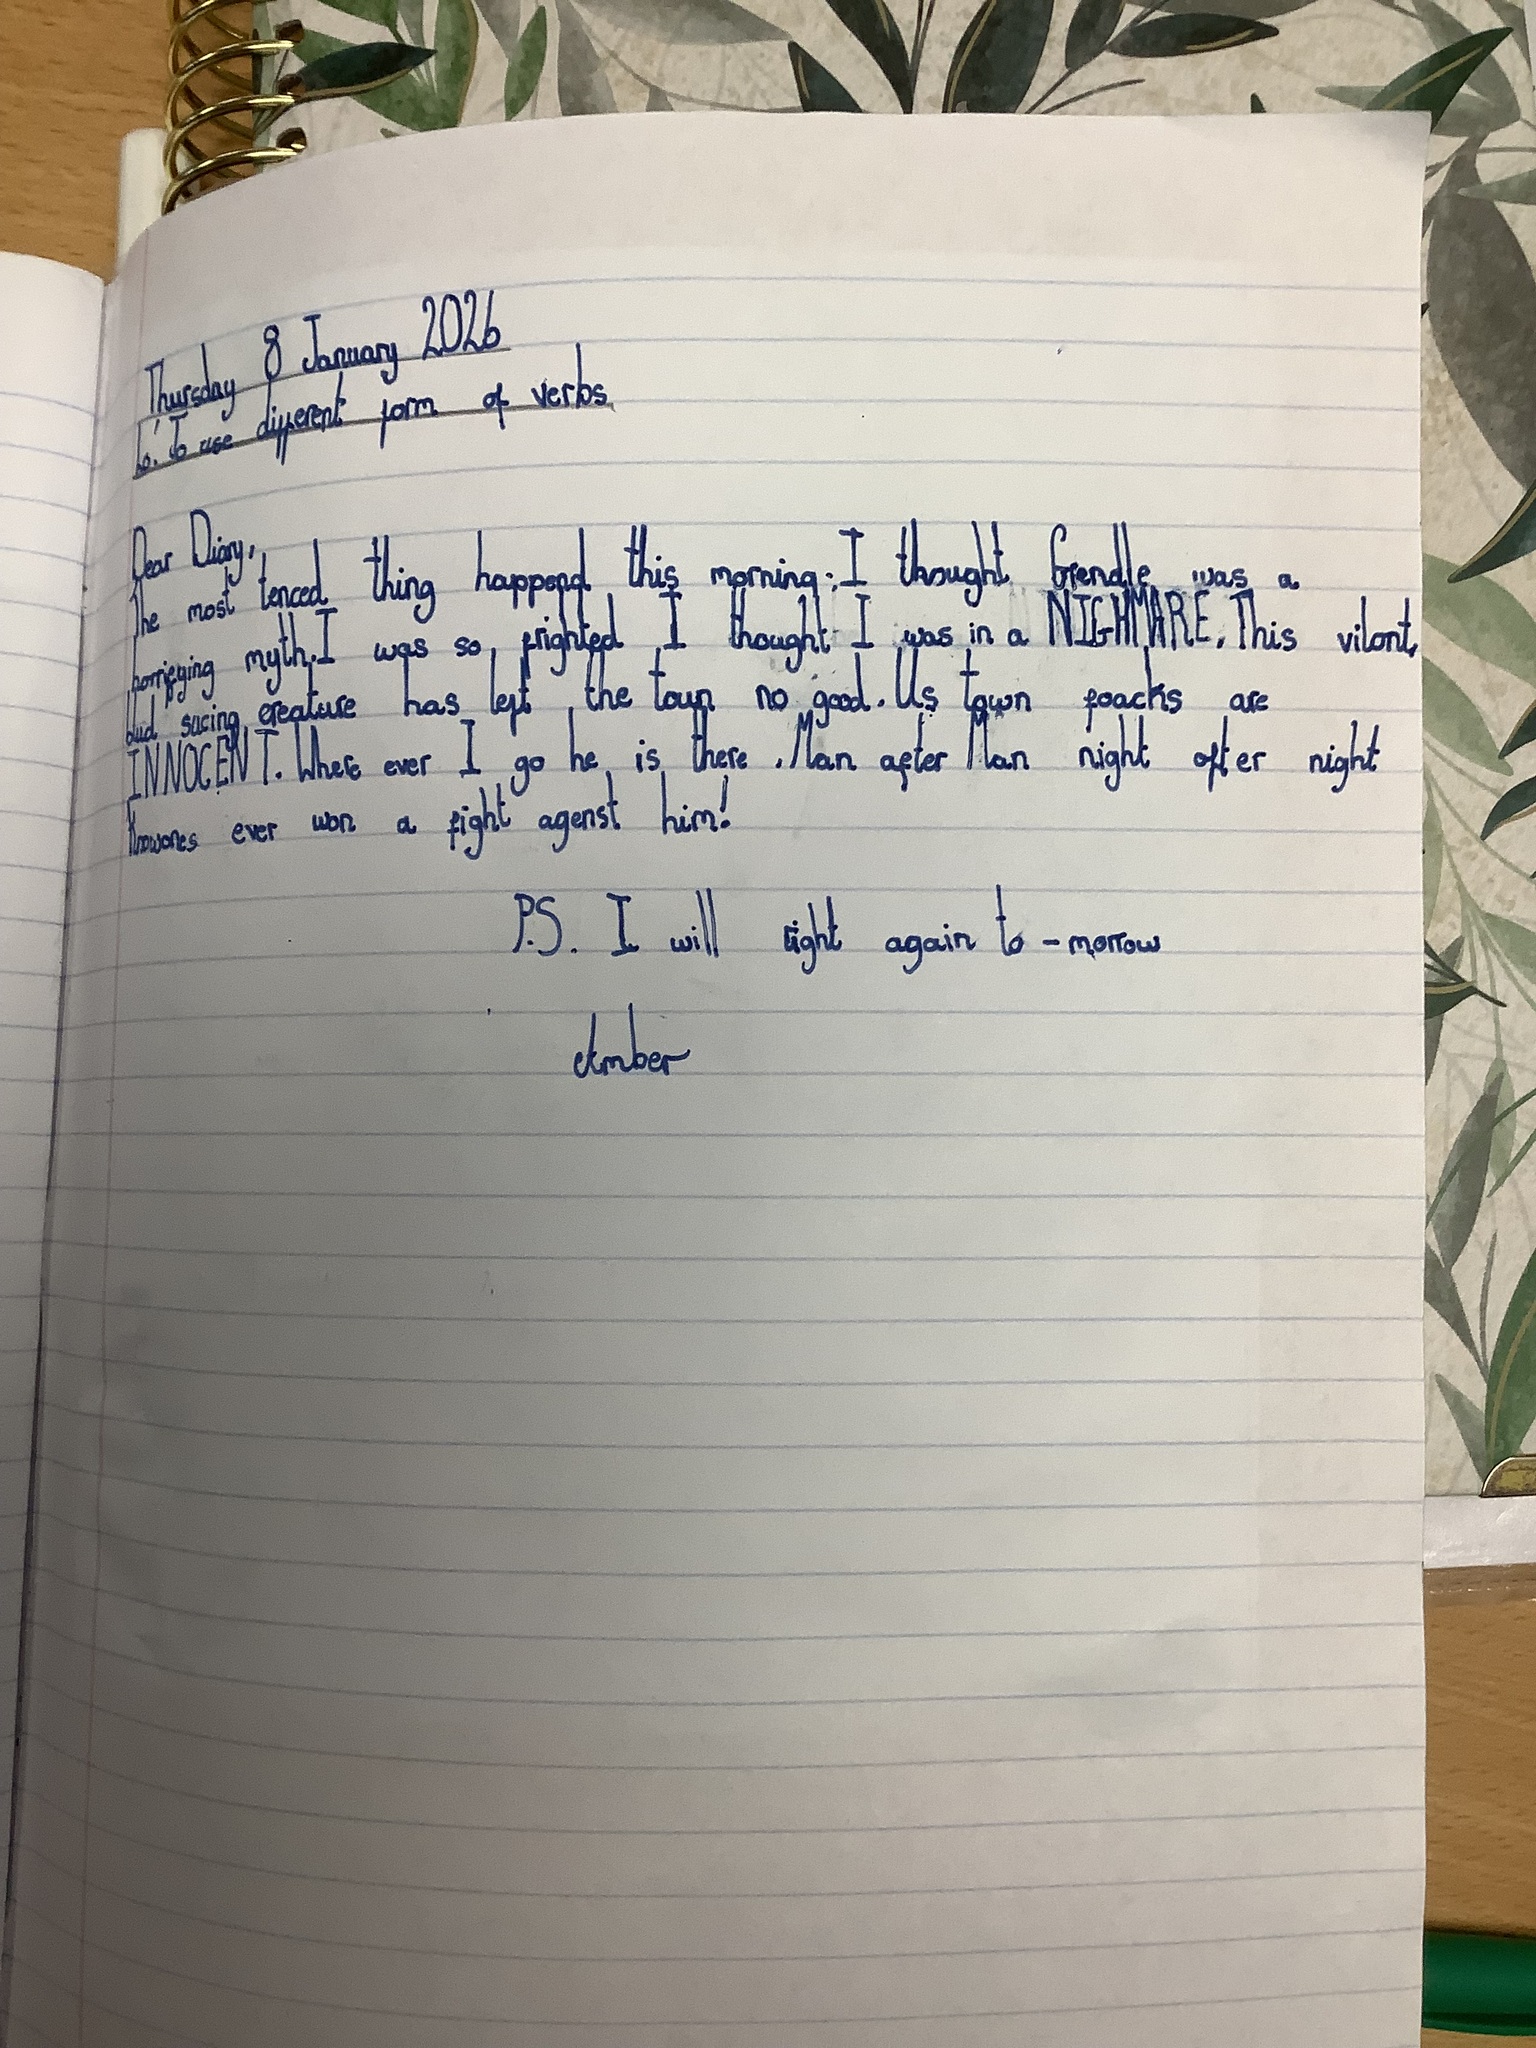 Thursday 8 January 2026
Lo: To use different form of verbs
Dear Diary,
The most tenced thing happend this morning. I thought Grendle was a
horrifying myth. I was so frighted I thought I was in a NIGHMARE. This vilont,
blud sucing creature has left the town no good. Us town foacks are
INNOCENT. Where ever I go he is there. Man after Man night after night
Knowones ever won a fight agenst him!
P.S. I will right again to-morrow
Amber